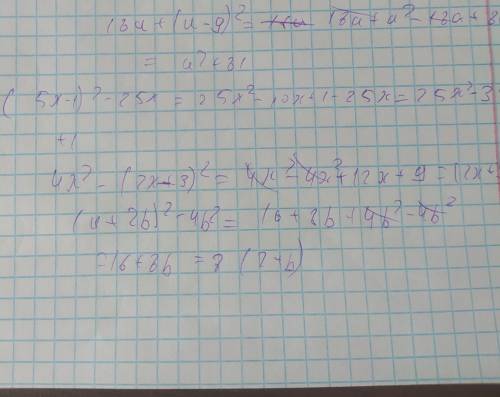 18a + (a - 9)² = 18a + a² - 18a + 8
= a² + 81
(5x-1)² - 25x = 25x² - 10x + 1 - 25x = 25x² - 3
+1
4x² - (2x-3)² = 4x² - 4x² + 12x + 9 = (12x +
(4 + 2b)² - 4b² = 16 + 8b + 4b² - 4b²
= 16 + 8b = 8 (2 + b)